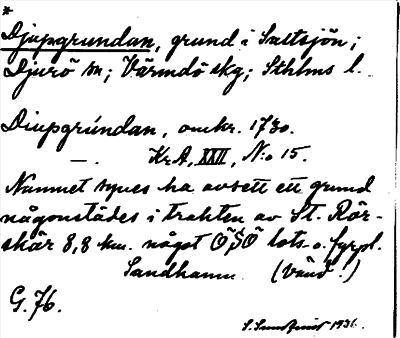 *
Djupgrundan, grund i Saltsjön;
Djurö sn; Värmdö skg; Sthlms l.
Diupgrúndan, omkr. 1730.
—. Kr.A, XXII, N:o 15.
Namnet synes ha avsett ett grund
någonstädes i trakten av St. Rör-
skär 8,8 km. något ÖSÖ lots- o. fyrpl.
Sandhamn (Vänd!)
G. 76.
1936.